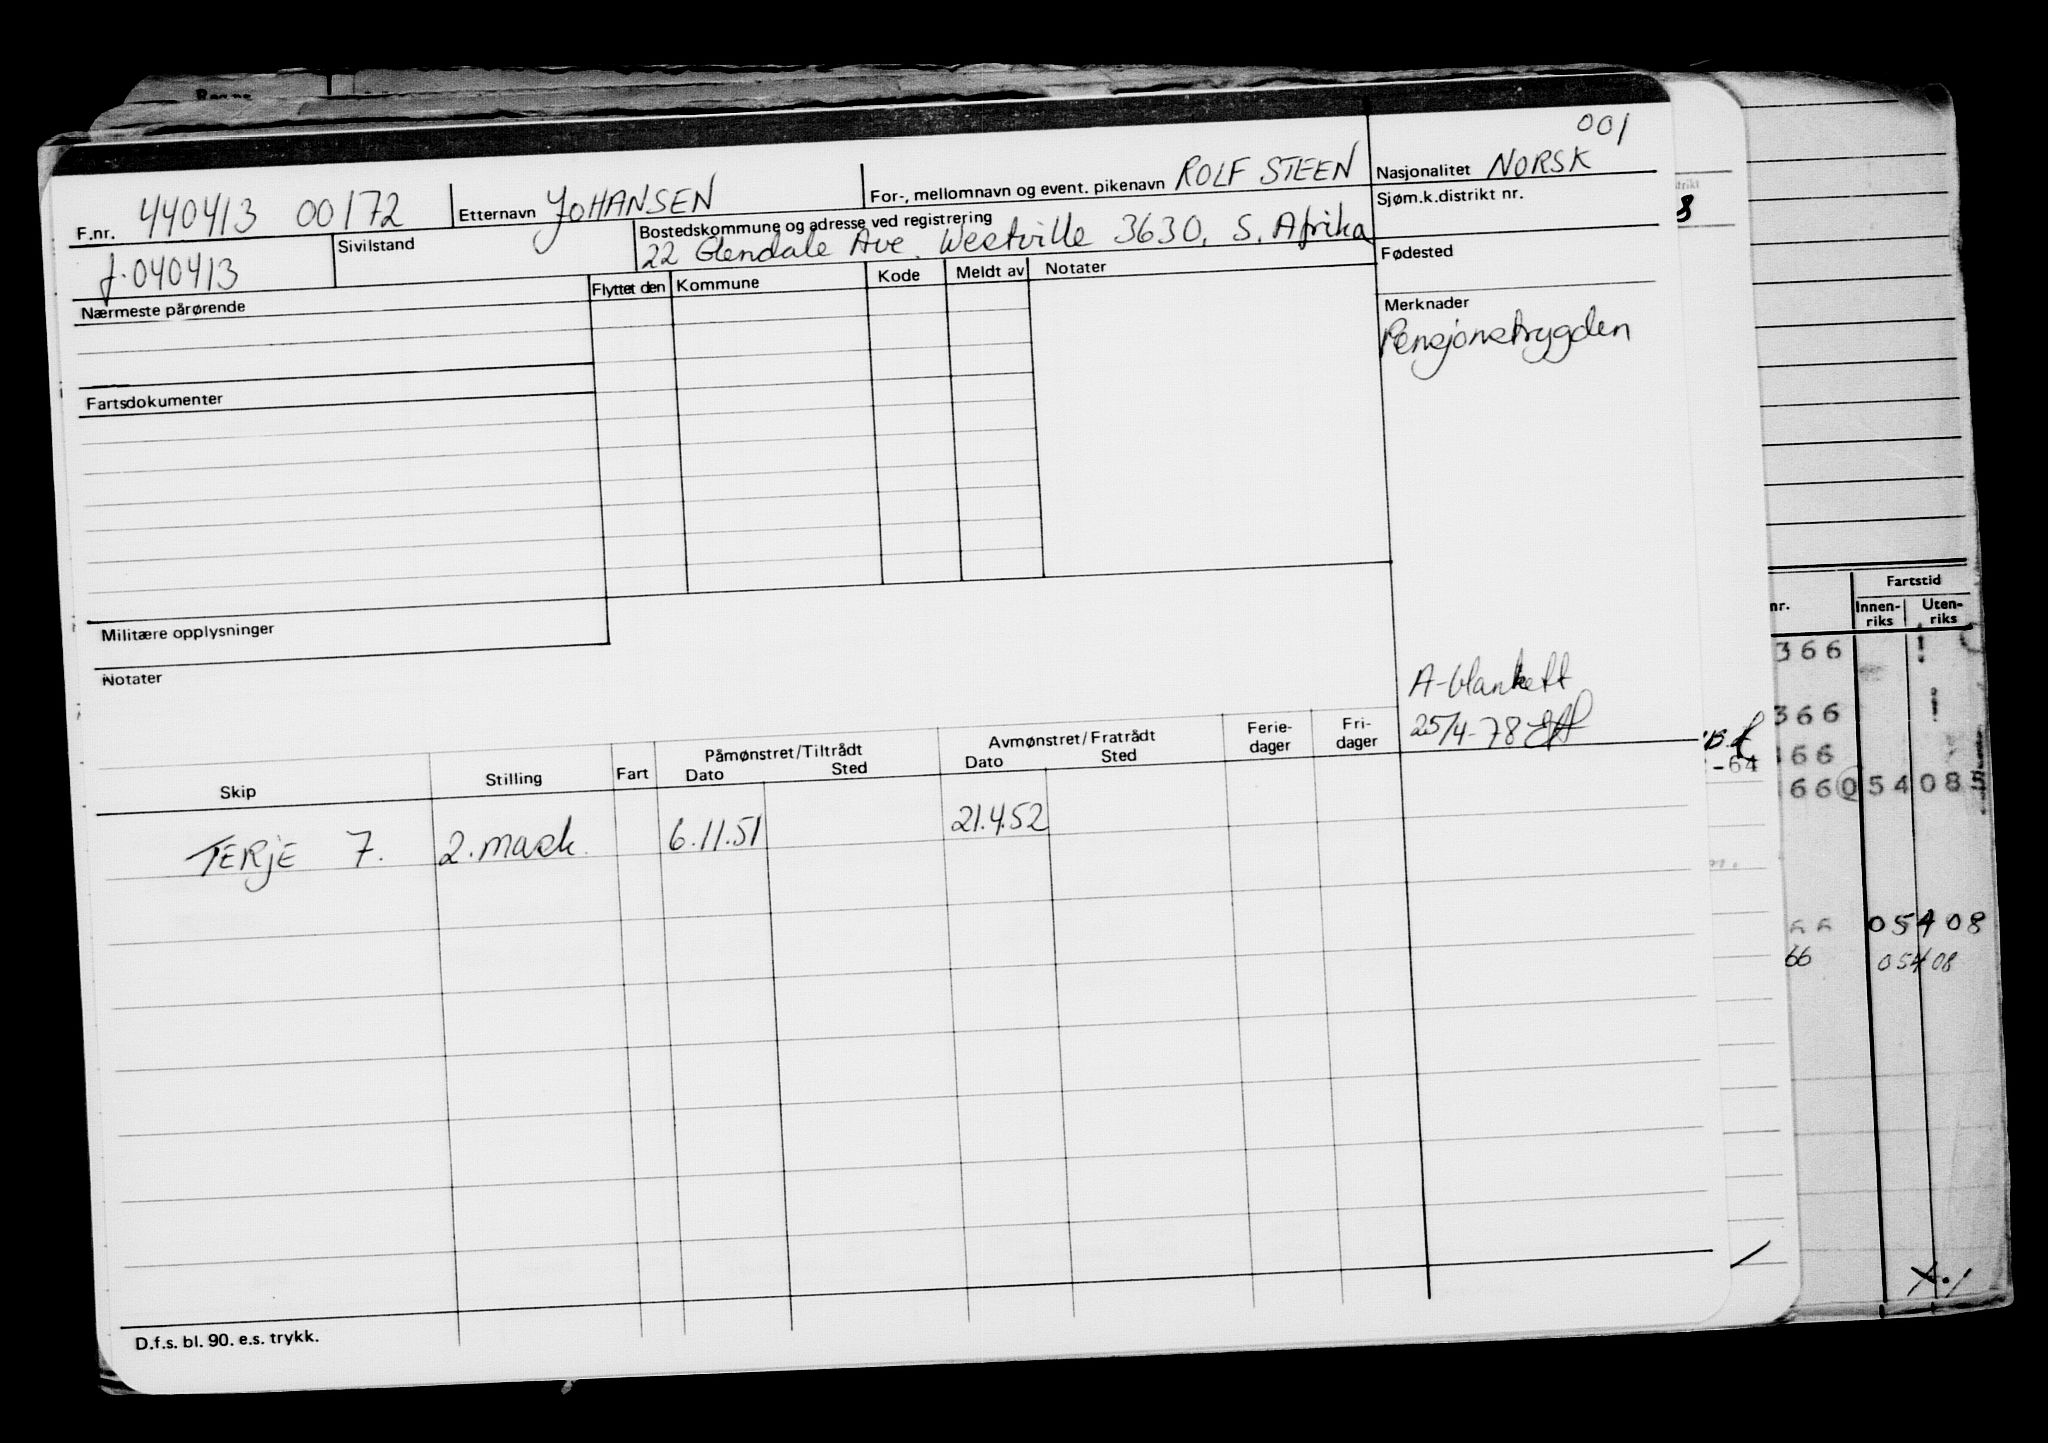 001
F.nr. 440413 00172 Etternavn JOHANSEN For-, mellomnavn og event. pikenavn ROLF STEEN Nasjonalitet NORSK
f. 040413 Sivilstand Bostedskommune og adresse ved registrering Sjøm.k.distrikt nr.
22 Glendale Ave. Westville 3630. S. Afrika
Nærmeste pårørende Flyttet den Kommune Kode Meldt av Notater Fødested
Merknader
Pensjonstrygden
Fartsdokumenter
Militære opplysninger
Notater
A-blankett
25/4-78
Skip Stilling Fart Påmønstret/Tiltrådt Avmønstret/Fratrådt Ferie-dager Fri-dager
Dato Sted Dato Sted
TERJE 7. 2. mask. 6.11.51 21.4.52
D.f.s. bl. 90. e.s. trykk.
8
nr. Fartstid
Innen-riks Uten-riks
366
366
66
-64
66 0 54 08
66 05408
66 05408